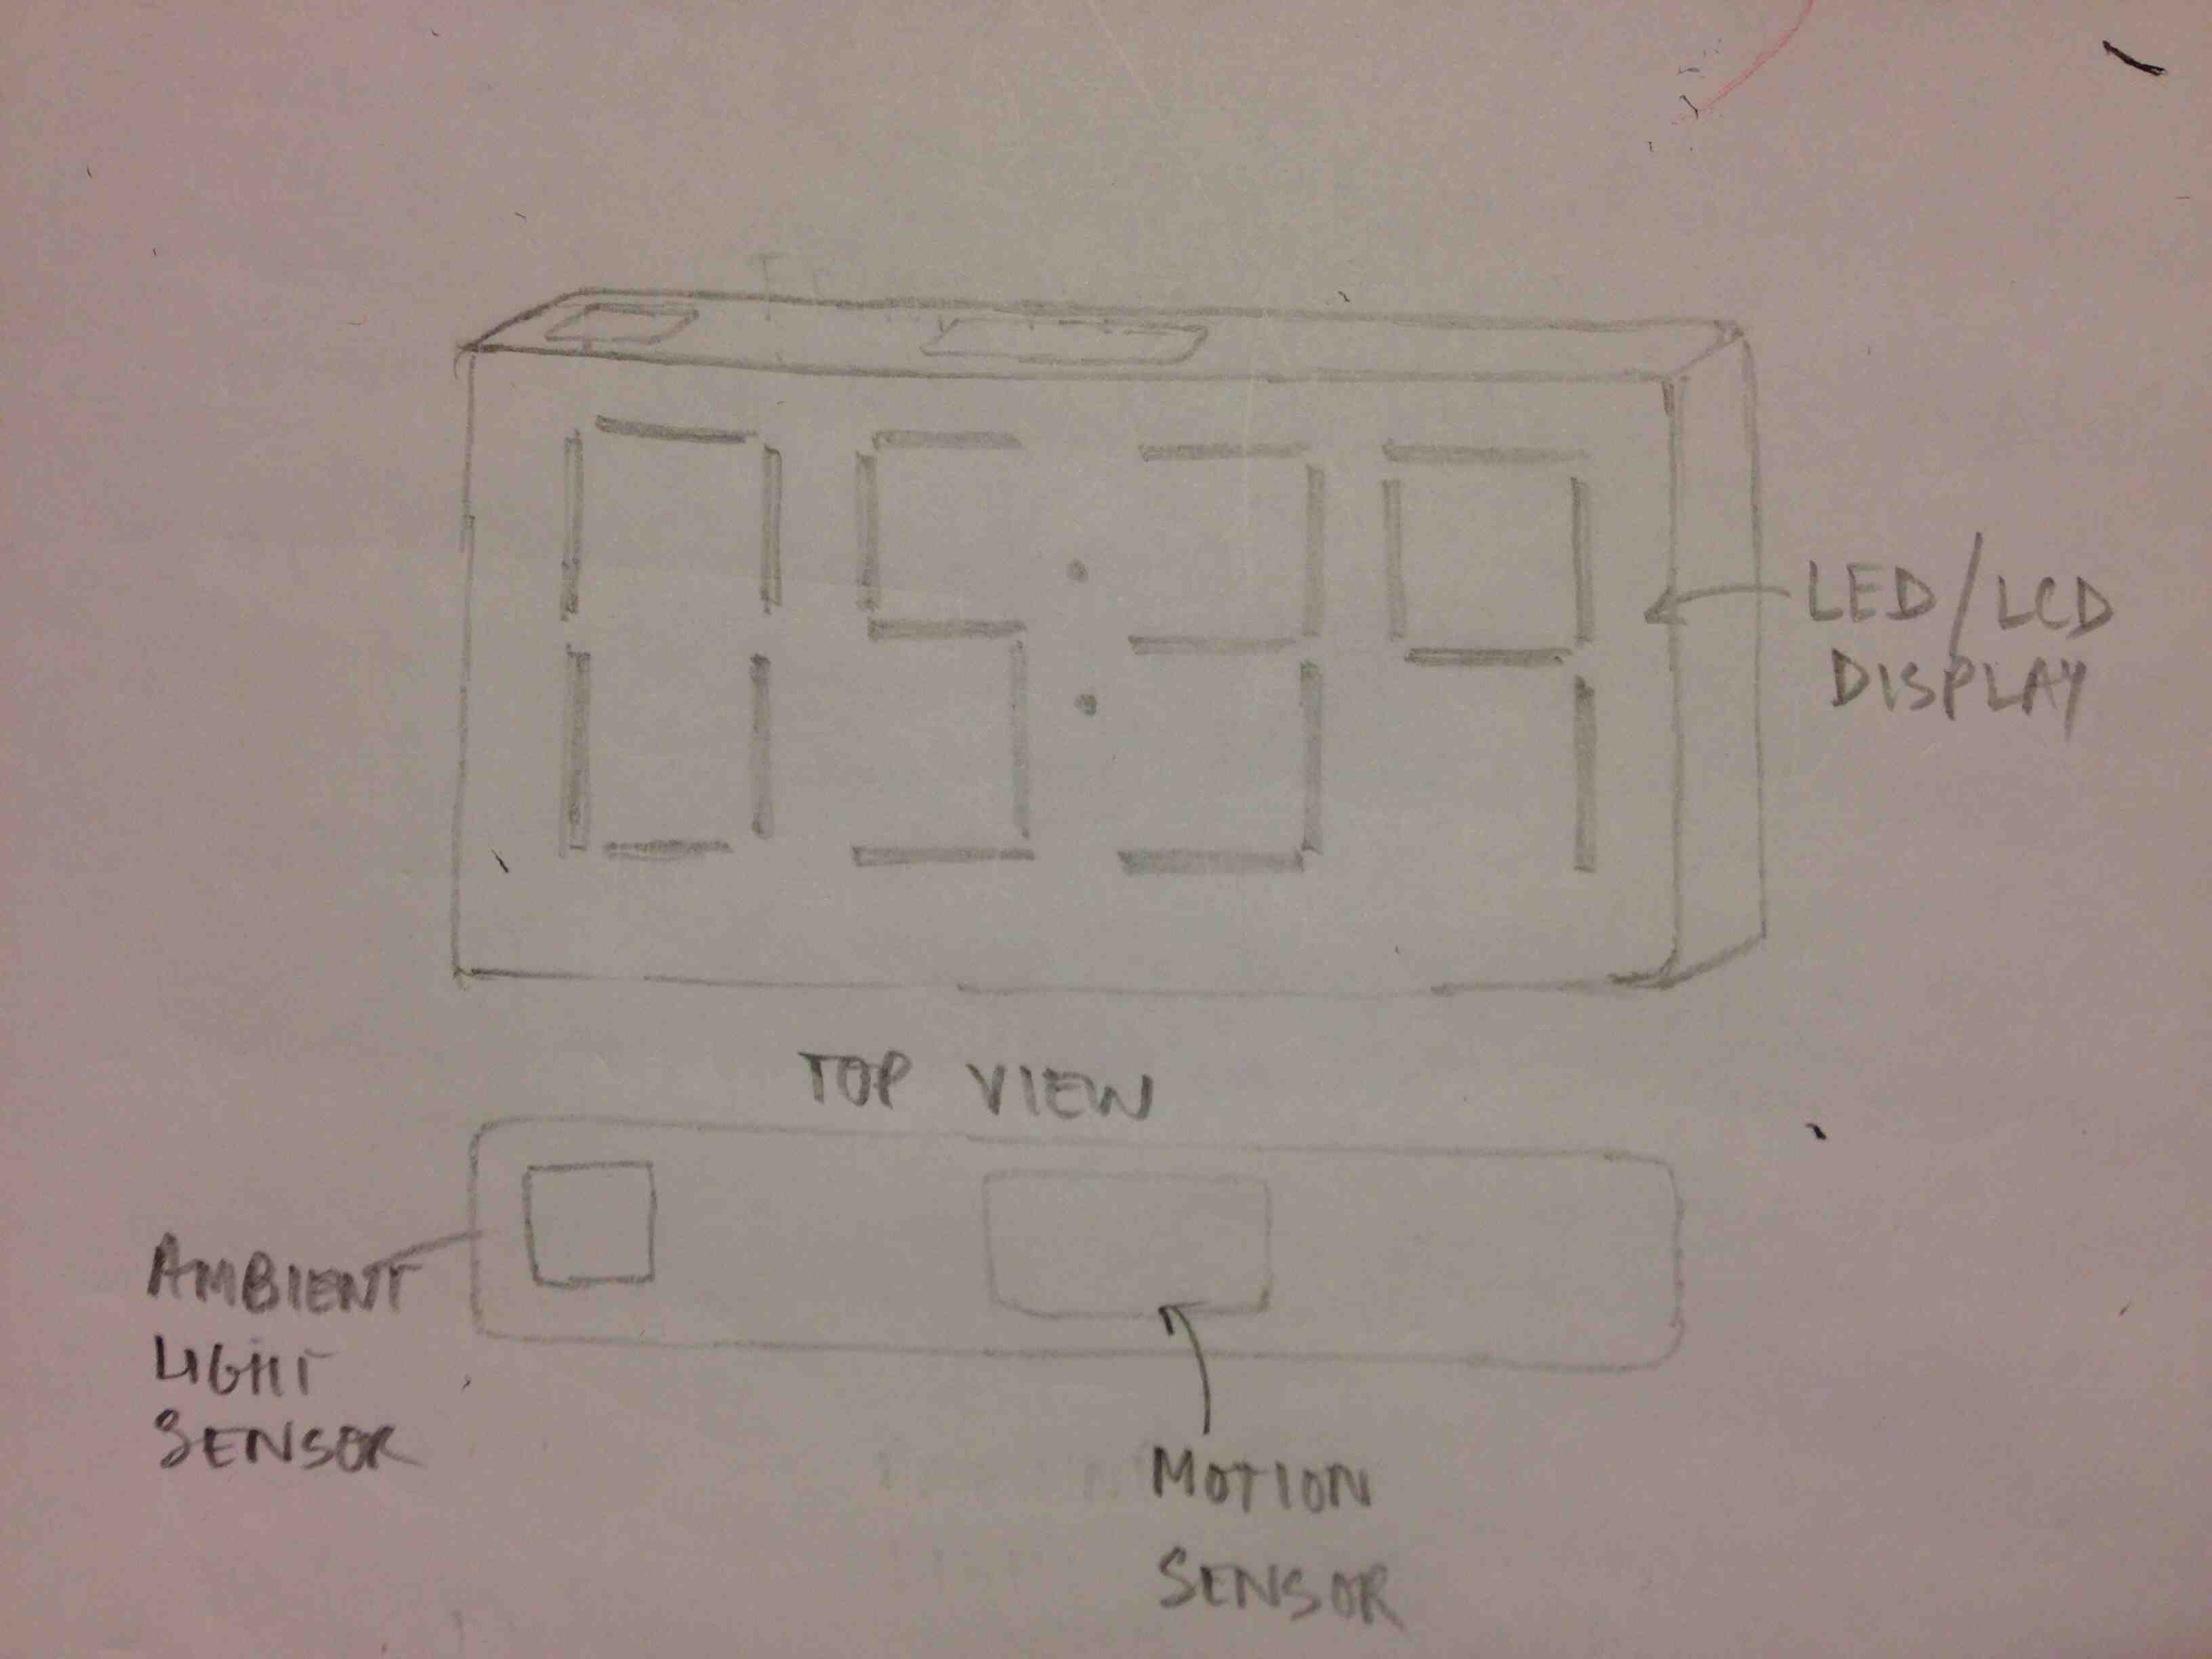 05:39
LED/LCD
DISPLAY
TOP VIEW
AMBIENT
LIGHT
SENSOR
MOTION
SENSOR